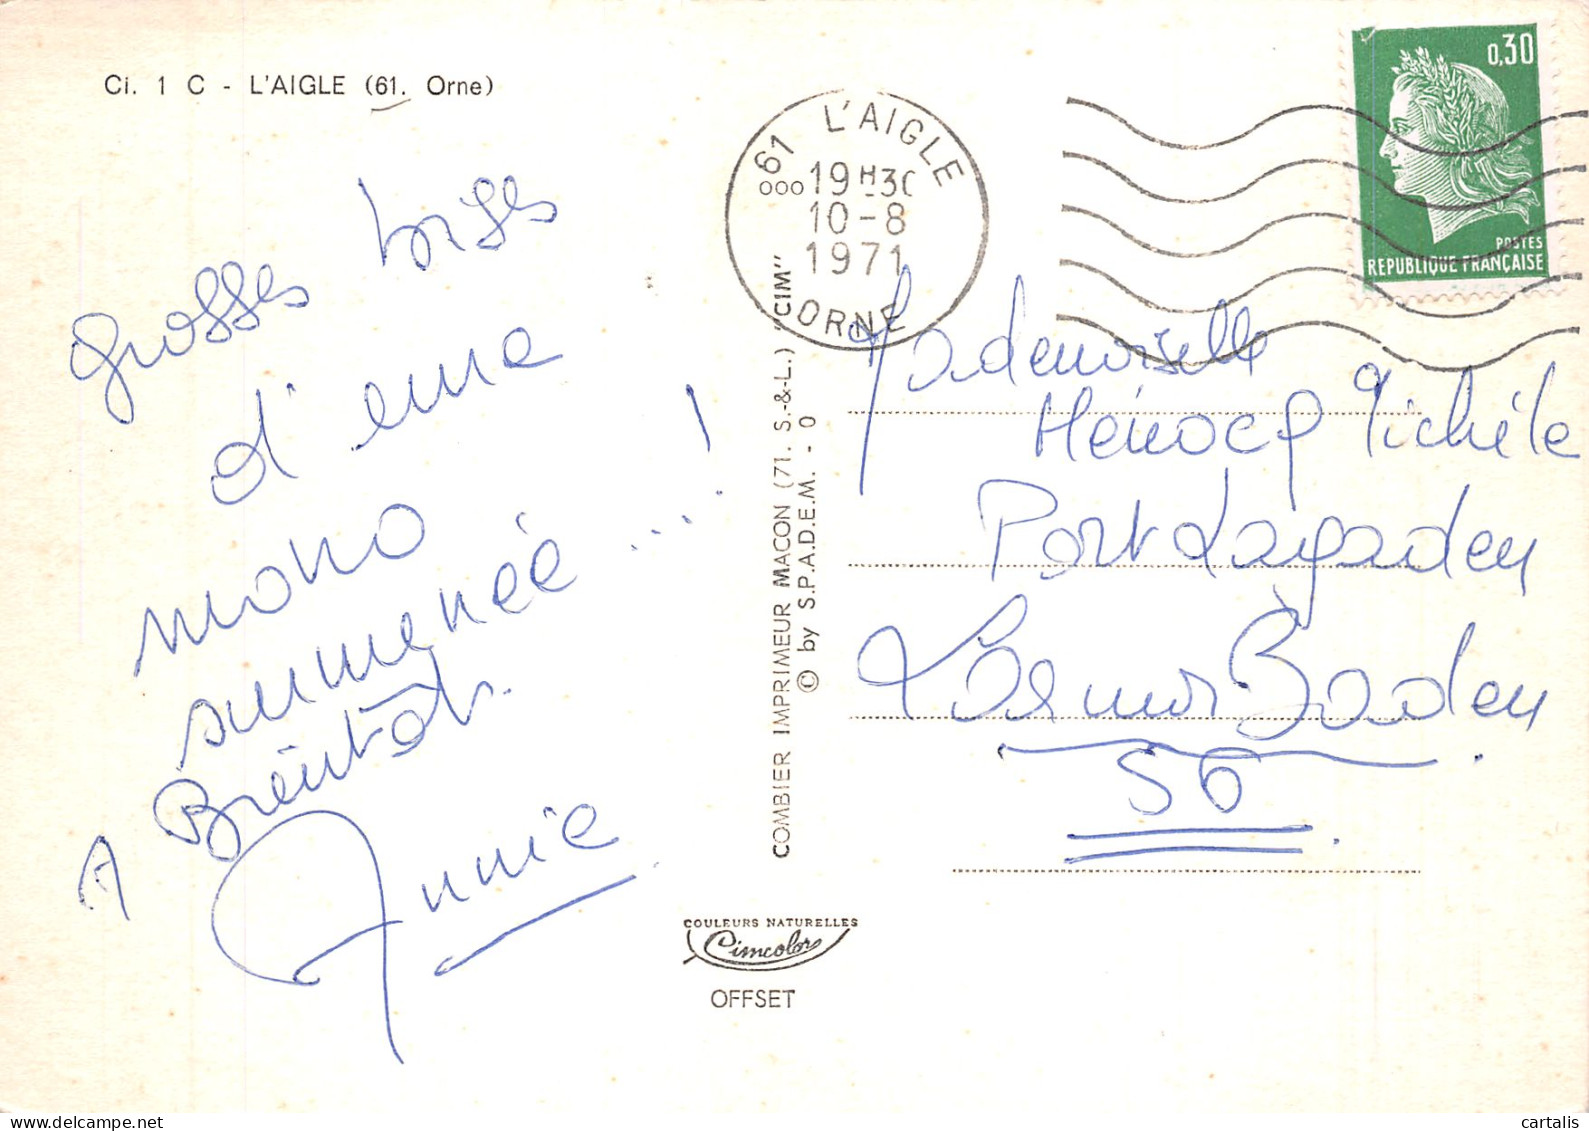 Ci. 1 C - L'AIGLE (61. Orne)
grosses bises
d'une
mono
surmenée ... !
A
Annie
COMBIER IMPRIMEUR MACON (71. S.-&-L.) "CIM"
© by S.P.A.D.E.M. - 0
COULEURS NATURELLES
Cimcolor
OFFSET
61 L'AIGLE
19H30
10-8
1971
ORNE
0,30
POSTES
REPUBLIQUE FRANÇAISE
Mademoiselle
Hénocq Michèle
Port Lagaden
Larmor Baden
56
cartalis
delcampe.net